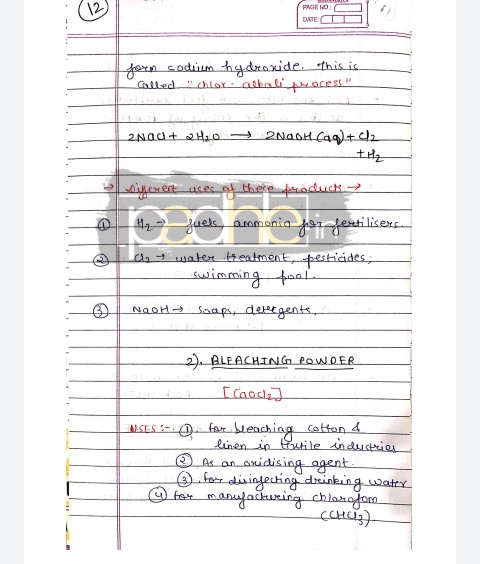 12
PAGE NO:
DATE:
form sodium hydroxide. This is
called "chlor-alkali process"
2NaCl + 2H2O → 2NaOH (aq) + Cl2
+ H2
→ Different uses of these products →
① H2 → fuels, ammonia for fertilisers.
② Cl2 → water treatment, pesticides,
swimming pool.
③ NaOH → soaps, detergents.
padhle.in
2). BLEACHING POWDER
[CaOCl2]
USES :- ① for bleaching cotton &
linen in textile industries
② As an oxidising agent.
③ for disinfecting drinking water
④ for manufacturing chloroform
(CHCl3)